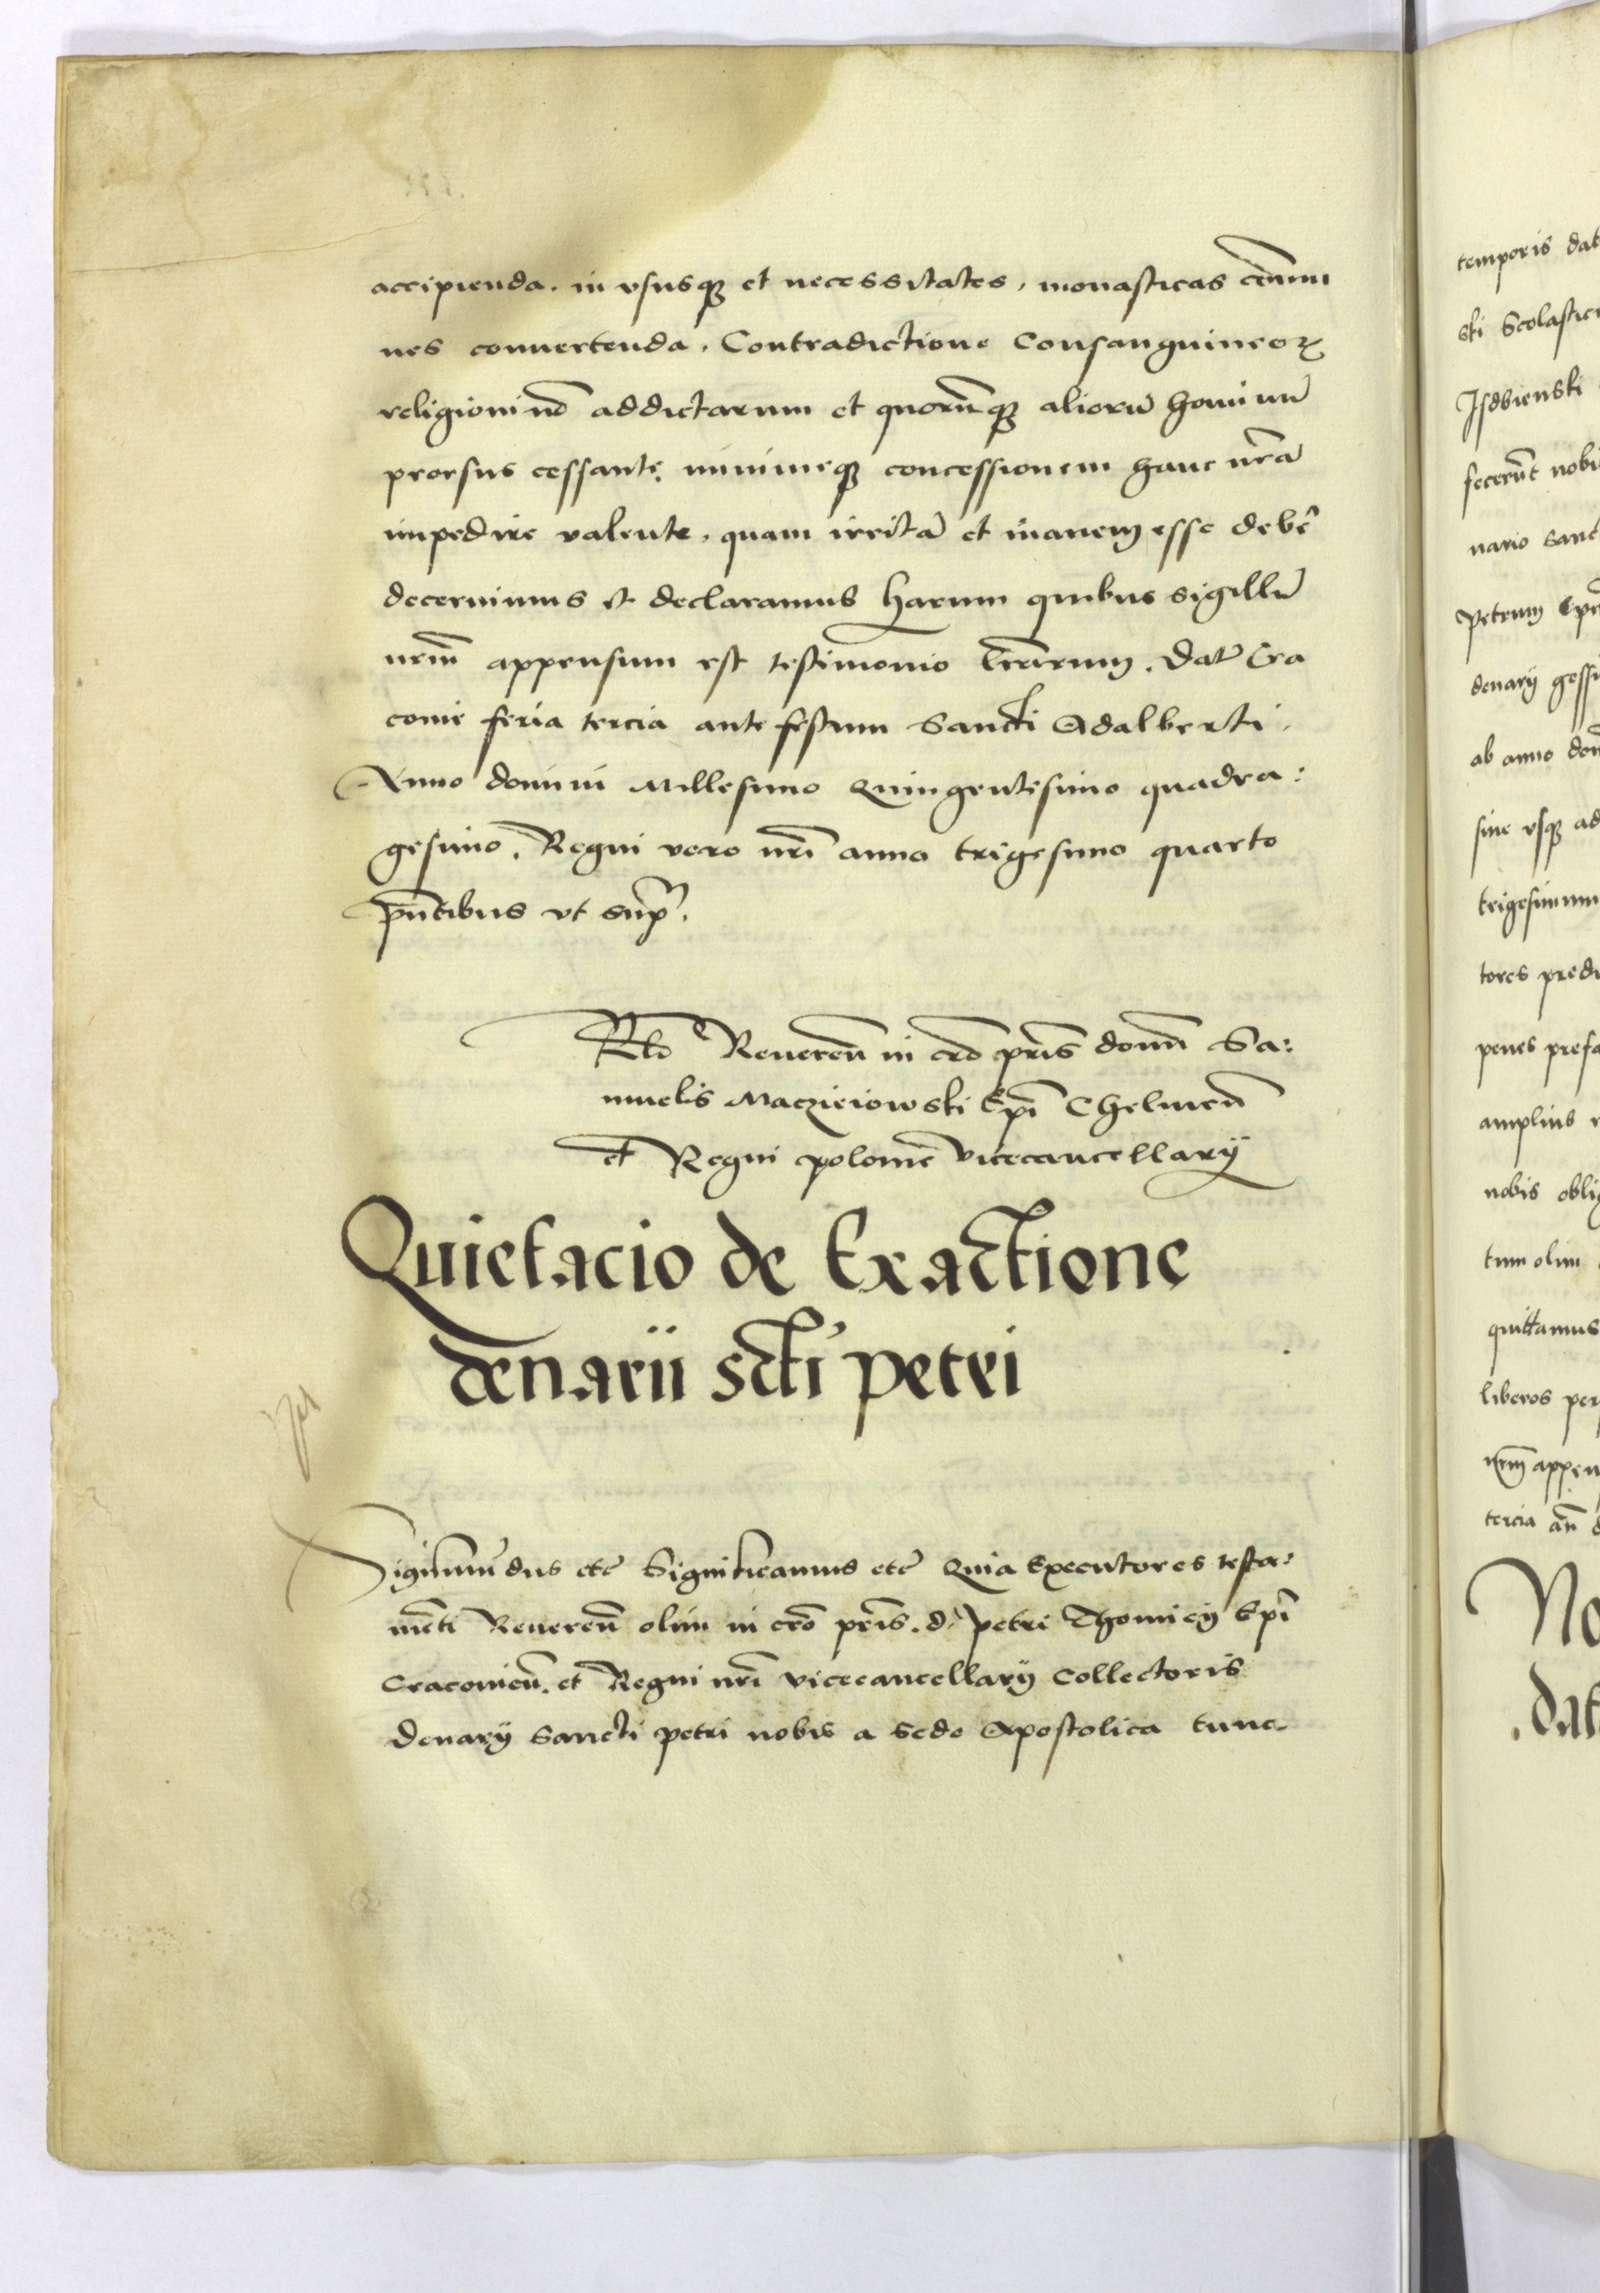 accipienda. in vsusq et necessitates, monasticas com̄u
nes conuertenda. Contradictione Consanguineor
religioni nō addictarum et quorūq aliorū hominū
prorsus cessante. minimeq concessionem hanc nr̄ā
impedire valente, quam irritā et inanem esse debē
decernimus et declaramus harum quibus sigillū
nrm̄ appensum est testimonio lrārum. Dat Cra
couie feria tercia ante festum Sancti Adalberti.
Anno domini Millesimo Quingentesimo quadra:
gesimo. Regni vero nrī anno trigesimo quarto
pn̄tibus vt sup.
Rlō Reueren̄ in crō pris domī Sa:
muelis Maczieiowski Epī Chelmen̄
et Regni polonie vicecancellarÿ
Quietacio de Exactione
denarii scti petri
Sigismūdus etc Significamus etc Quia Executores testa:
mēti Reueren̄ olim in crō pris. d. petri Thomicÿ Epī
Cracouien̄. et Regni nrī vicecancellarÿ Collectoris
denarÿ Sancti petri nobis a sede Apostolica tunc
temporis dat
ski Scolastic
Isdbienski
fecerūt nobi
nario sanc
petrum Epm
denarÿ gessi
ab anno dom
sine vsq ad
trigesimum
tores predi
penes prefa
amplius
nobis obli
tum olim
quittamus
liberos per
nrm̄ appen
tercia an̄
No
.dat